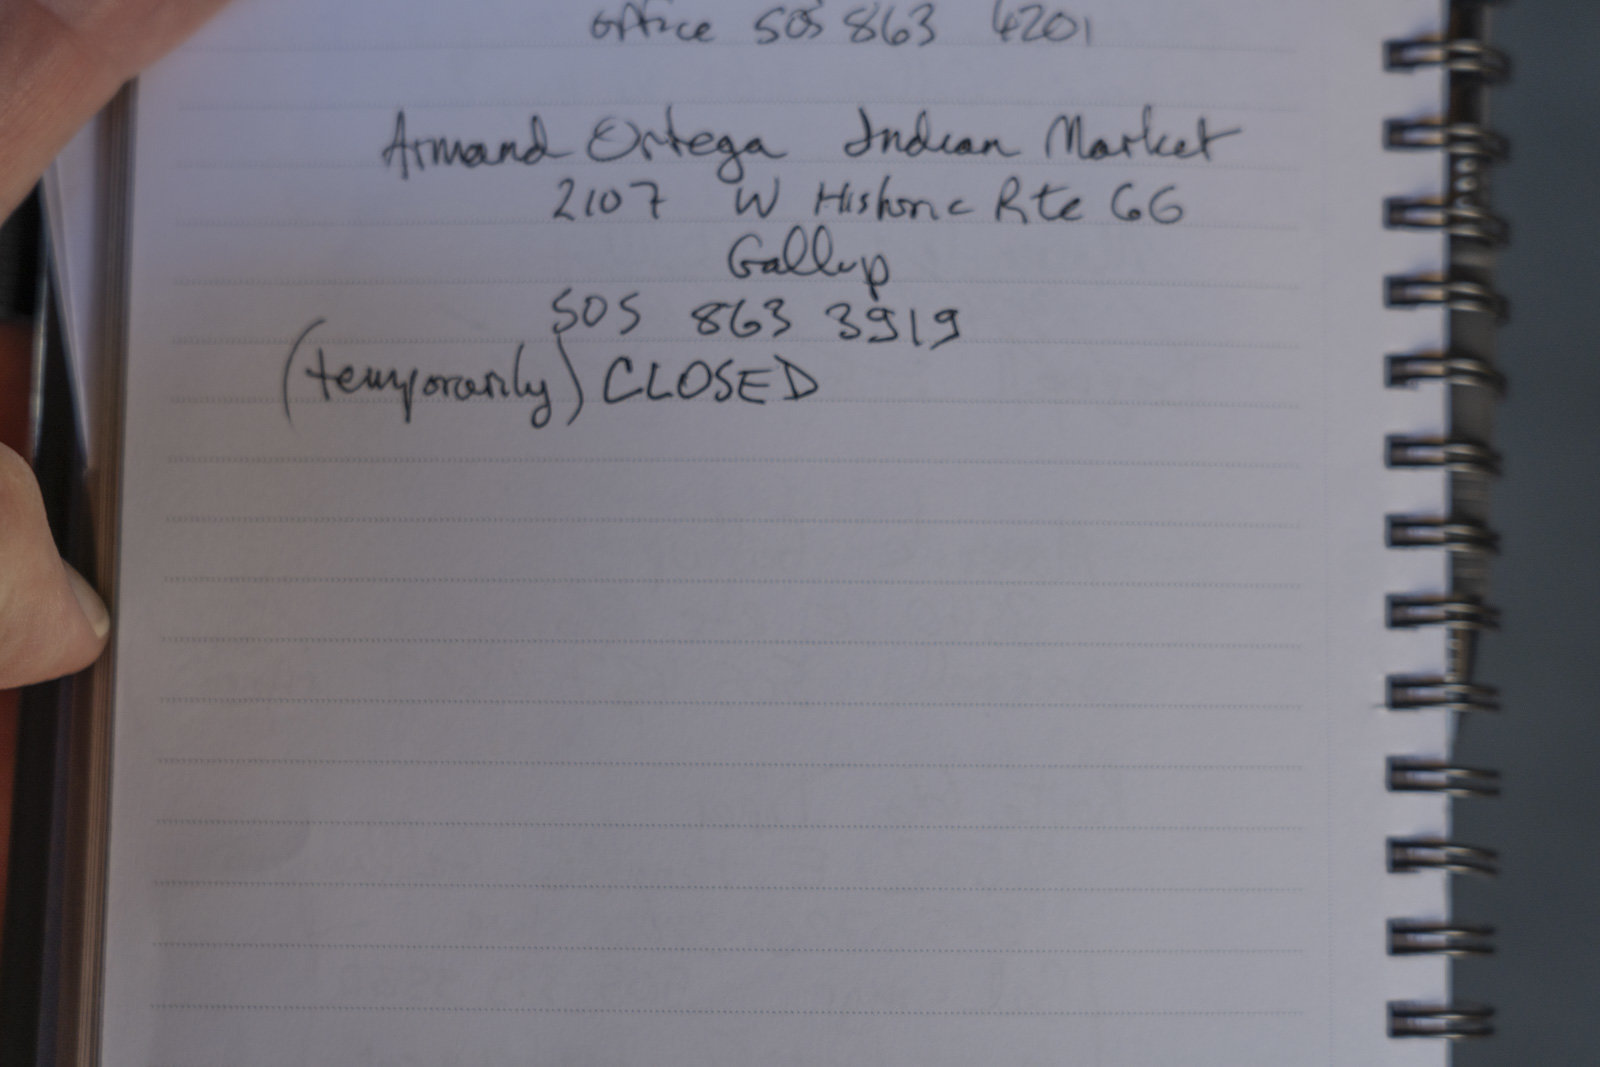 office 505 863 4201
Armand Ortega Indian Market
2107 W Historic Rte 66
Gallup
505 863 3919
(temporarily) CLOSED